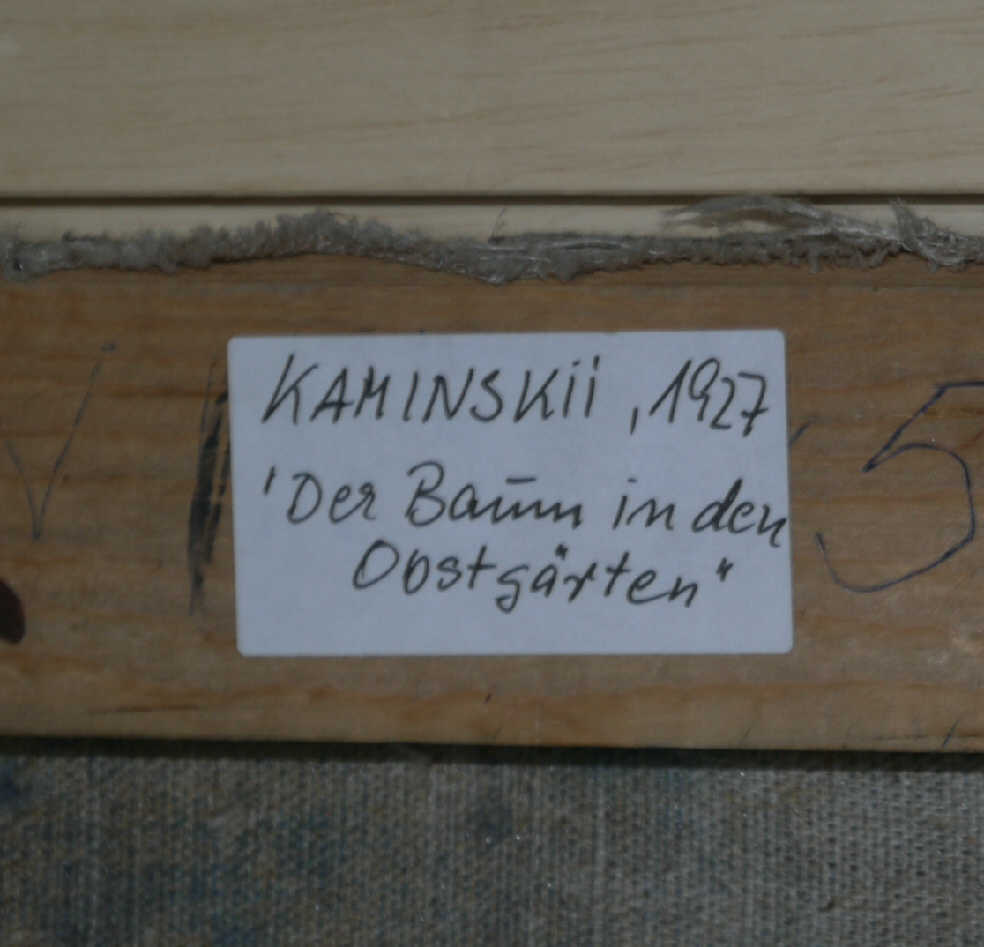 KAMINSKii, 1927
'Der Baum in den
Obstgärten"
5